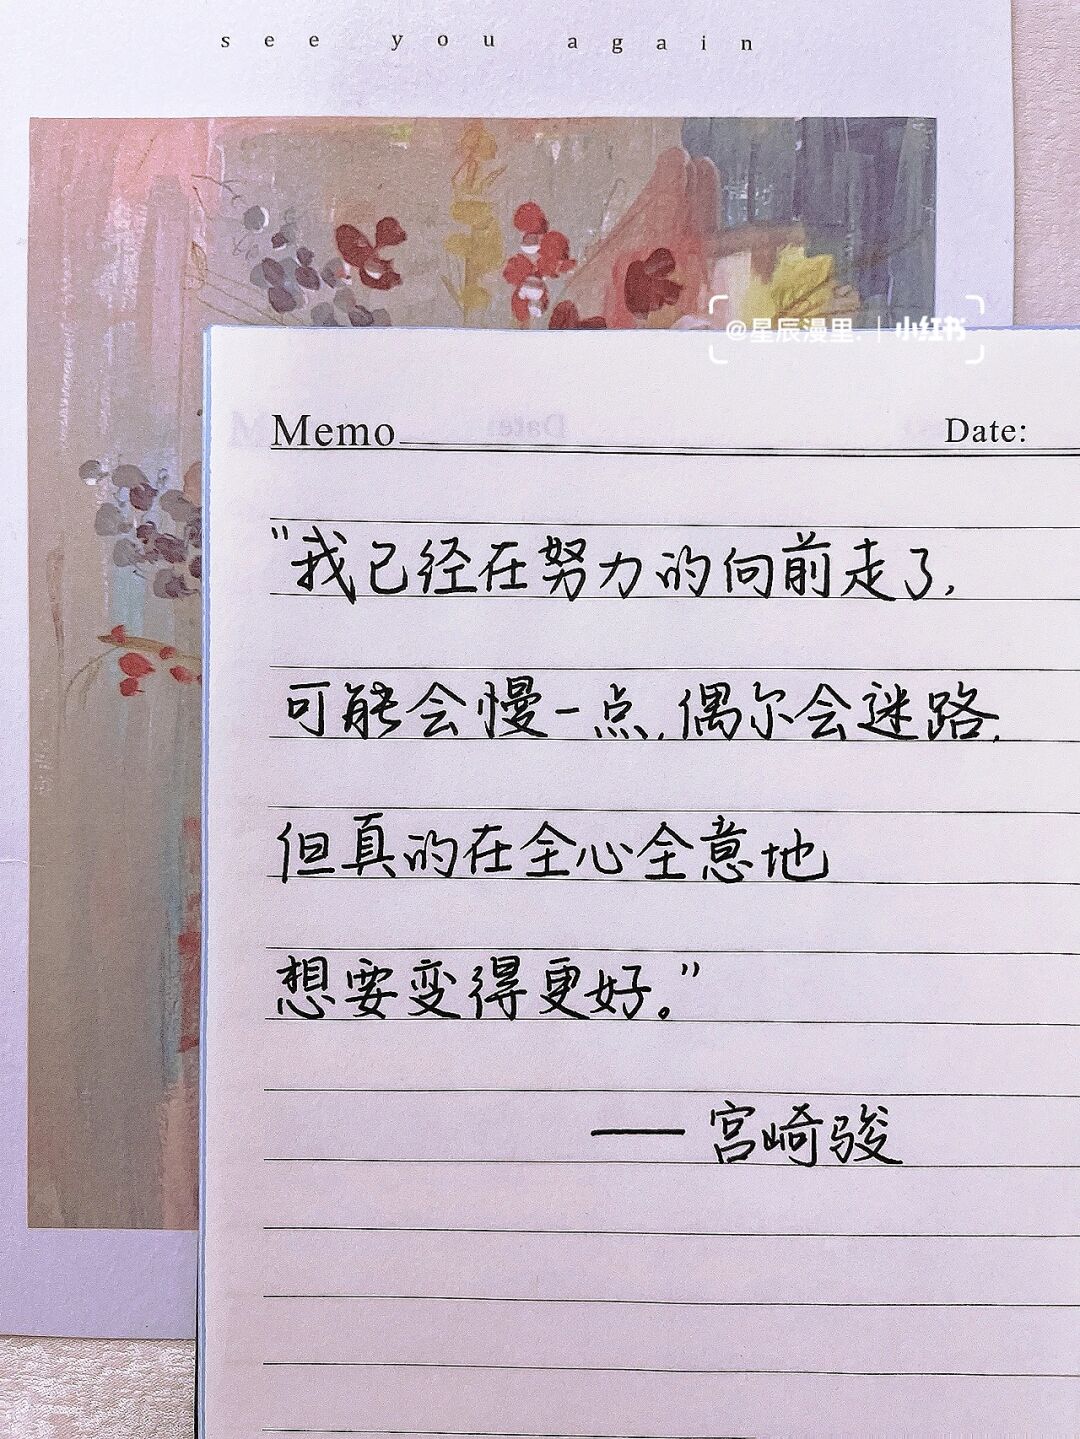 see you again
@星辰漫里. | 小红书
Memo Date:
"我已经在努力的向前走了,
可能会慢一点,偶尔会迷路,
但真的在全心全意地
想要变得更好。"
——宫崎骏